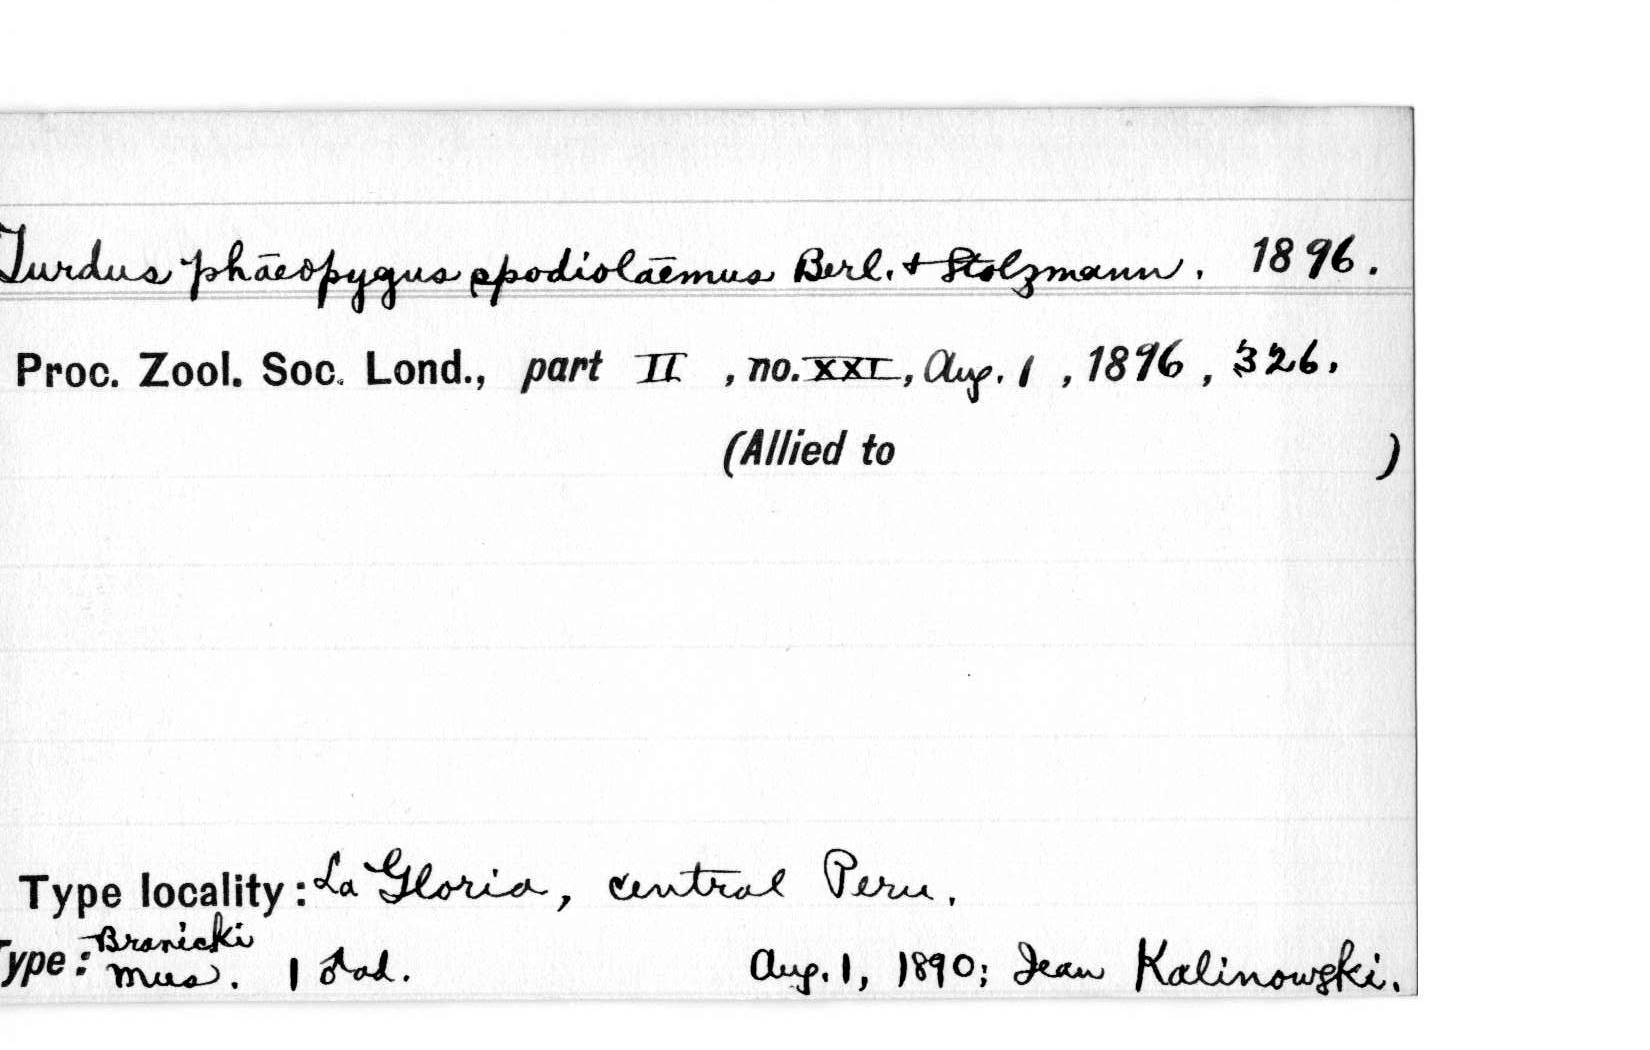 Turdus phāeopygus spodiolāemus Berl. & Stolzmann. 1896.
Proc. Zool. Soc. Lond., part II , no. XXI, Aug. 1 , 1896 , 326.
(Allied to )
Type locality: La Gloria, central Peru.
Type: Branicki Mus. 1 ♂ ad. Aug. 1, 1890; Jean Kalinowski.